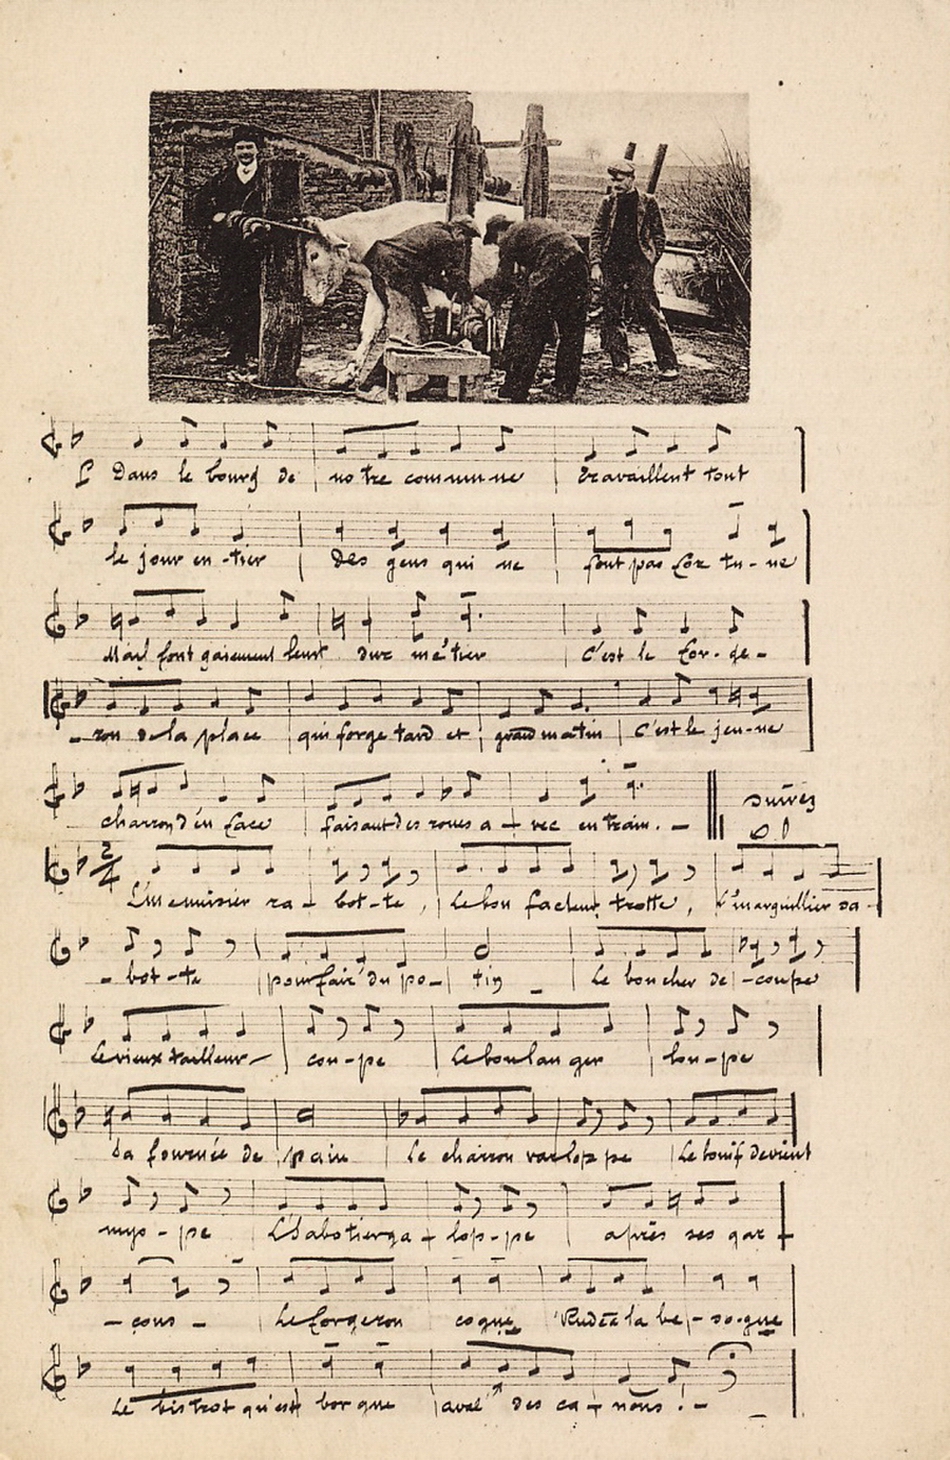 Dans le bourg de no tre com-mu-ne travaillent tout
le jour en-tier Des gens qui ne font pas for tu-ne
Mais font gaiement leurt dur mé'tier C'est le for-ge-
-ron de la place qui forge tard et grand matin C'est le jeu-ne
charron d'en face faisant des roues a - vec entrain. -
suivez
2/4
L'menuisier ra- bot-te, Le bon facteur trotte, L'marguillier sa-
- bot-te pour fair' du po- tin - Le boucher de -coupe
Le vieux tailleur cou-pe Le boulan ger lou-pe
Sa fournée de pain Le charron varlop pe Le bouif devient
myo-pe L'sabotier ga- lop-pe après ses gar-
-çons - Le forgeron cogne Rude à la be-so-gne
Le bistrot qu'est bor gne aval' des ca-nons! -